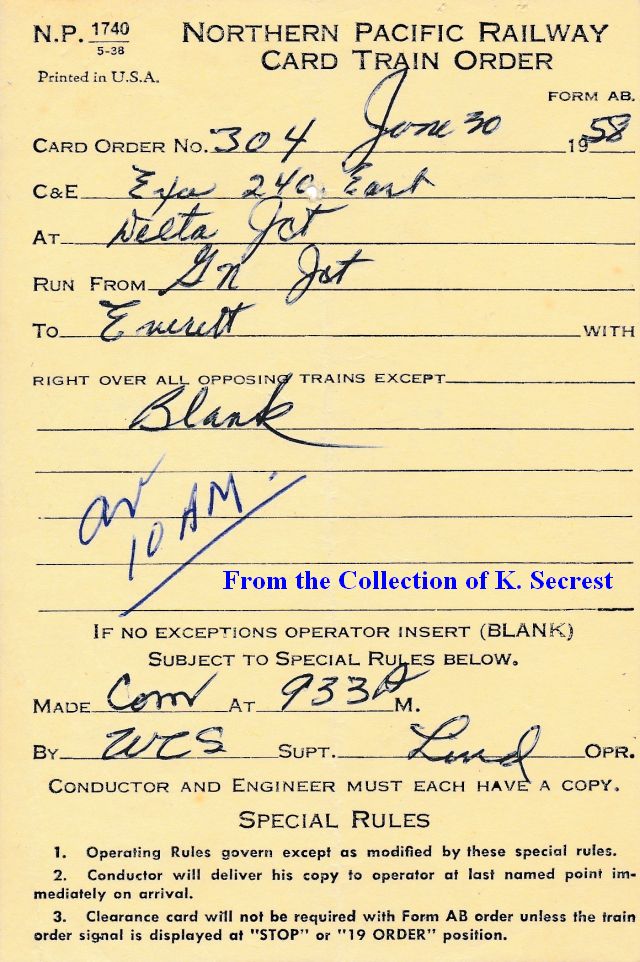 N.P. 1740 NORTHERN PACIFIC RAILWAY
5-38 CARD TRAIN ORDER
Printed in U.S.A.
FORM AB.
June 30 1958
CARD ORDER NO. 304
C&E East
AT Delta Jct
RUN FROM GN Jct
TO Everett WITH
RIGHT OVER ALL OPPOSING TRAINS EXCEPT
Blank
ar
10 AM.
From the Collection of K. Secrest
IF NO EXCEPTIONS OPERATOR INSERT (BLANK)
SUBJECT TO SPECIAL RULES BELOW.
MADE Com AT 933A M.
BY WCS SUPT. Lund OPR.
CONDUCTOR AND ENGINEER MUST EACH HAVE A COPY.
SPECIAL RULES
1. Operating Rules govern except as modified by these special rules.
2. Conductor will deliver his copy to operator at last named point im-
mediately on arrival.
3. Clearance card will not be required with Form AB order unless the train
order signal is displayed at "STOP" or "19 ORDER" position.